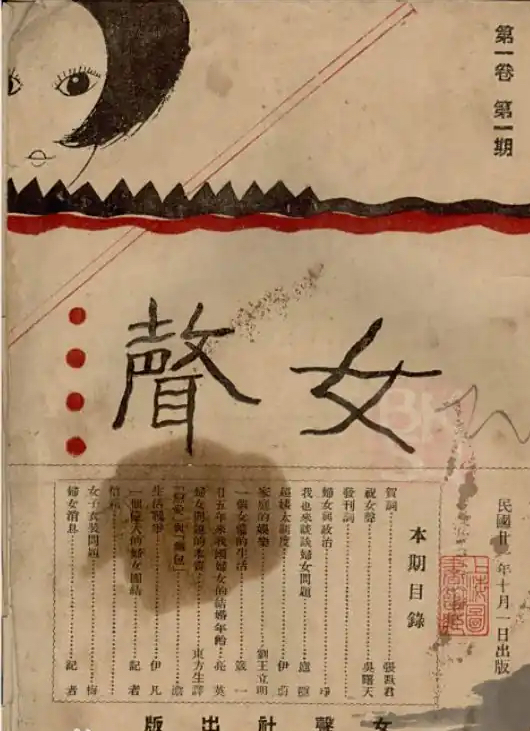 第一卷 第一期
女聲
民國廿一年十月一日出版
本期目錄
賀詞 張默君
祝女聲 吳曙天
發刊詞
婦女與政治
我也來談談婦女問題
姨太太制度 伊蔚
家庭的娛樂 劉王立明
一個女傭的生活
廿五年來我國婦女的結婚年齡 亮英
婦女問題的本質 東方生譯
「戀愛」與「麵包」
生活戰爭 伊凡
的婦女團結 記者
信箱
女子衣裝問題 梅
婦女消息 記者
女聲社出版